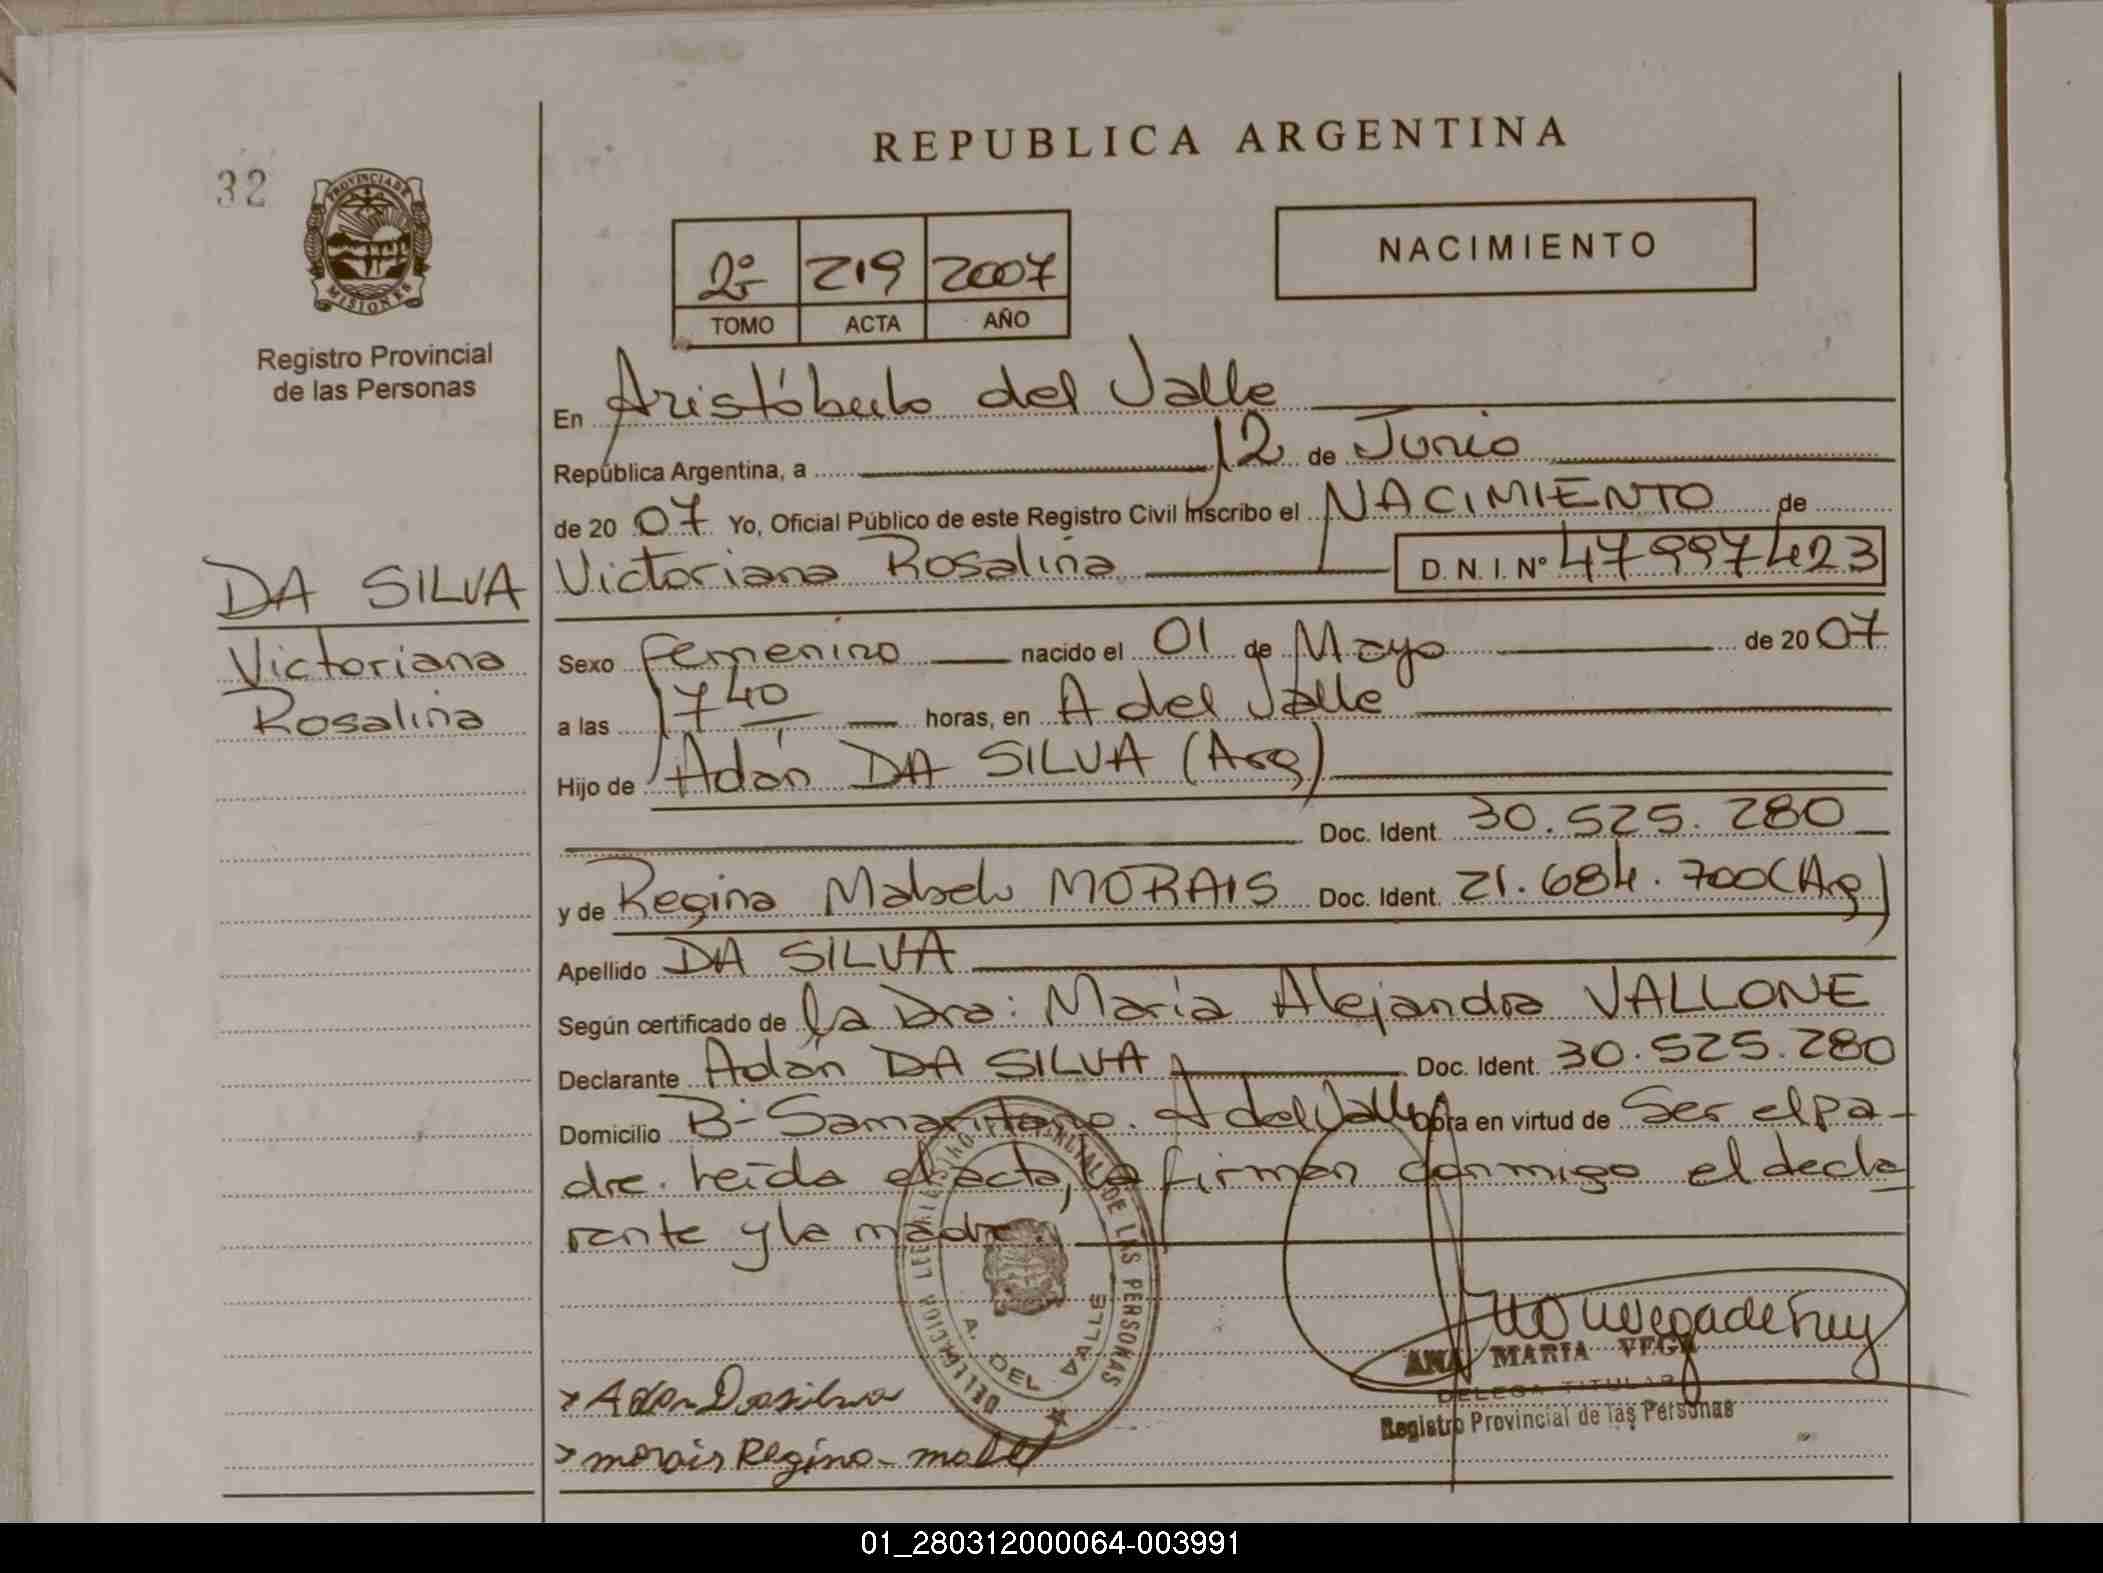 32
PROVINCIA DE
MISIONES
Registro Provincial
de las Personas
REPUBLICA ARGENTINA
NACIMIENTO
2º 219 2007
TOMO ACTA AÑO
En Aristóbulo del Valle
República Argentina, a 12 de Junio
de 20 07 Yo, Oficial Público de este Registro Civil Inscribo el NACIMIENTO de
DA SILVA
Victoriana
Rosalina
Victoriana Rosalina D. N. I. Nº 47997423
Sexo femenino nacido el 01 de Mayo de 20 07
a las 1740 horas, en A del Valle
Hijo de Adán DA SILVA (Arg)
Doc. Ident. 30.525.280
y de Regina Mabel MORAIS Doc. Ident. 21.684.700 (Arg)
Apellido DA SILVA
Según certificado de la Dra: María Alejandra VALLONE
Declarante Adán DA SILVA Doc. Ident. 30.525.280
Domicilio Bº Samaritano. A del Valle Obra en virtud de Ser el pa-
dre. leída el acta, la firman conmigo el decla
rante y la madre.
REGISTRO PROVINCIAL DE LAS PERSONAS
A. DEL VALLE
ANA MARIA VEGA
DELEGA TITULAR
Registro Provincial de las Personas
> Adan Dasilva
> morais Regina mabel
01_280312000064-003991